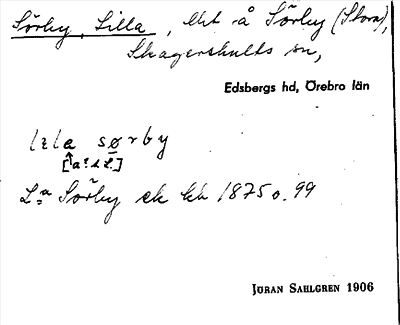 Sörby, Lilla, Ekt å Sörby (Stora),
Skagershults sn,
Edsbergs hd, Örebro län
lɩla sørby
[a? d. L.]
L:a Sörby ek kb 1875 o. 99
JÖRAN SAHLGREN 1906